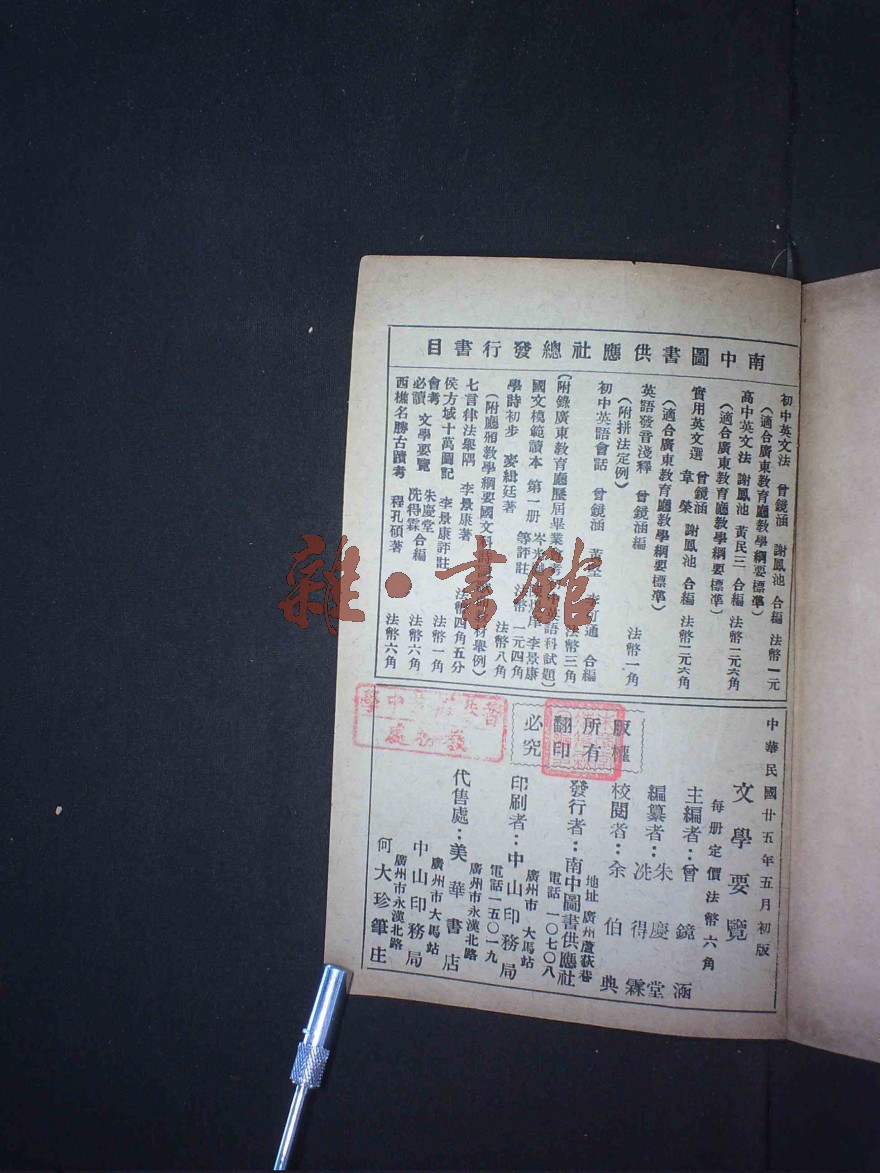 南中圖書供應社總發行書目
初中英文法 曾鏡涵 謝鳳池 合編 法幣一元
（適合廣東教育廳教學綱要標準）
高中英文法 謝鳳池 黃民三 合編 法幣一元六角
（適合廣東教育廳教學綱要標準）
實用英文選 曾鏡涵 章榮 謝鳳池 合編 法幣一元六角
（適合廣東教育廳教學綱要標準）
英語發音淺釋 曾鏡涵編 法幣一角
（附拼法定例）
初中英語會話 曾鏡涵 黃 合編 法幣三角
（附錄廣東教育廳歷屆畢業會考 中英語科試題）
國文模範讀本 第一册 岑光 李景康 等評註 法幣一元四角
學詩初步 麥緝廷著 法幣八角
（附廳頒教學綱要國文科 材舉例）
七言律法舉隅 李景康著 法幣四角五分
侯方域十萬圖記 李景康評註 法幣一角
會考必讀 文學要覽 朱慶堂 冼得霖 合編 法幣六角
西樵名勝古蹟考 程孔碩著 法幣六角
中華民國廿五年五月初版
文學要覽
每册定價法幣六角
主編者：曾鏡涵
編纂者：朱慶堂
冼得霖
校閱者：余伯典
版權所有
翻印必究
發行者：南中圖書供應社
地址 廣州蘆荻巷
電話 一〇七〇八
印刷者：中山印務局
廣州市大馬站
電話一五〇一九
代售處：美華書店
廣州市永漢北路
中山印務局
廣州市大馬站
何大珍筆庄
廣州市永漢北路
中學
教務處
雜·書館